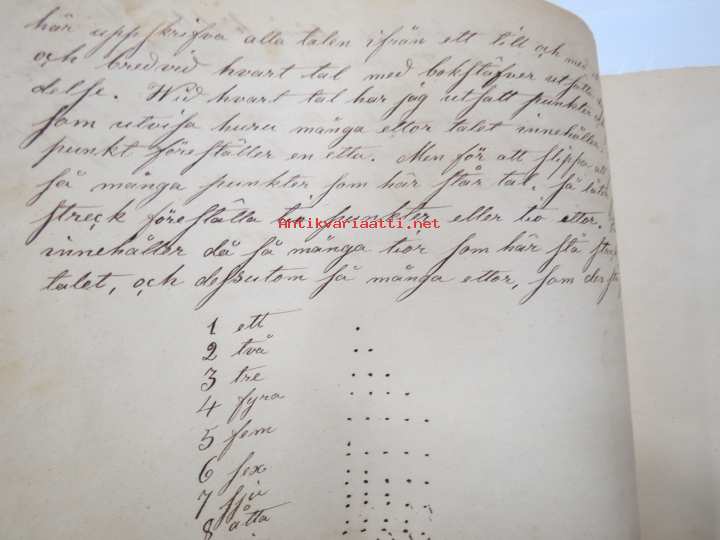 här uppskrifva alla talen ifrån ett till och med
och bredvid hvart tal med bokstäfver utsätta
delse. Wid hvart tal har jag utsatt punkter
som utvisa huru många ettor talet innehåller.
punkt föreställer en etta. Men för att slippa
så många punkter som här står tal. så låter
streck föreställa tio punkter eller tio ettor.
innehåller då så många tior som här stå
talet, och dessutom så många ettor, som der
Antikvariaatti.net
1 ett .
2 två ..
3 tre ...
4 fyra ....
5 fem .....
6 sex
7 sju
8 åtta